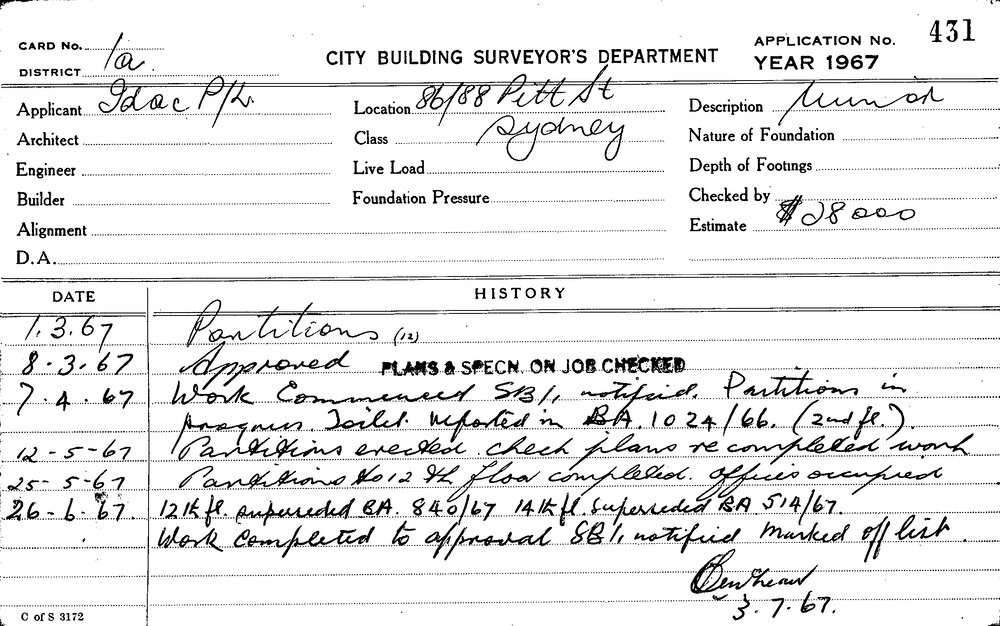 431
CARD No. 1a.
CITY BUILDING SURVEYOR'S DEPARTMENT
APPLICATION No.
DISTRICT
YEAR 1967
Applicant Idac P/L.
Location 86/88 Pitt St
Description
Architect
Class Sydney
Nature of Foundation
Engineer
Live Load
Depth of Footings
Builder
Foundation Pressure
Checked by
Alignment
Estimate $28000
D.A.
DATE HISTORY
1.3.67 Partitions (12)
8.3.67 Approved PLANS & SPECN. ON JOB CHECKED
7.4.67 Work Commenced SB1, notified. Partitions in
progress. Toilet reported in BA. 1024/66. (2nd fl.).
12-5-67 Partitions erected. check plans re completed work
25-5-67 Partitions to 12th floor completed. offices occupied
26-6-67. 12th fl. superseded BA. 840/67 14th fl. superseded BA 514/67.
Work Completed to approval SB1, notified marked off list.
3.7.67.
C of S 3172